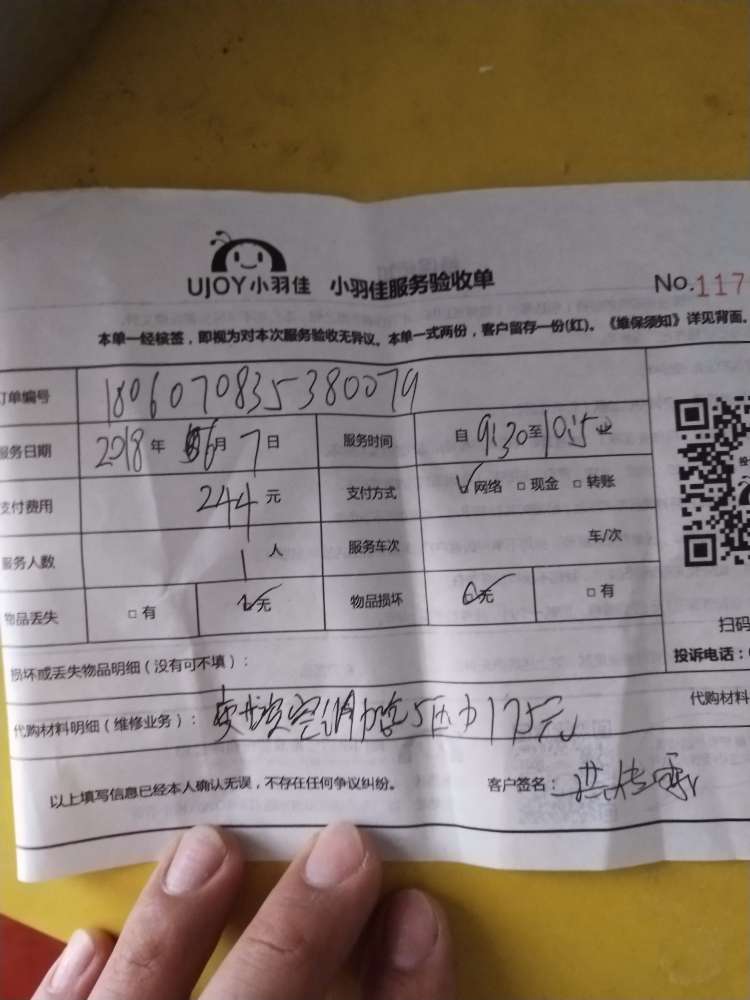 UJOY小羽佳 小羽佳服务验收单 No.117
本单一经核签，即视为对本次服务验收无异议。本单一式两份，客户留存一份(红)。《维保须知》详见背面。
订单编号 1806070835380079
服务日期 2018年 6月 7日 服务时间 自 9:30至10:5
支付费用 244元 支付方式 网络 □ 现金 □ 转账
服务人数 1人 服务车次 车/次
物品丢失 □ 有 无 物品损坏 无 □ 有
扫码
损坏或丢失物品明细（没有可不填）： 投诉电话：
代购材料明细（维修业务）： 空调 5匹 175元 代购材料
以上填写信息已经本人确认无误，不存在任何争议纠纷。 客户签名：洪